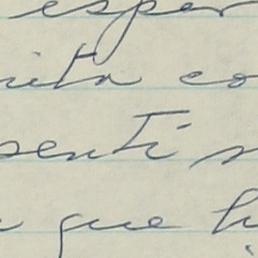 esper
rita co
senti n
que h